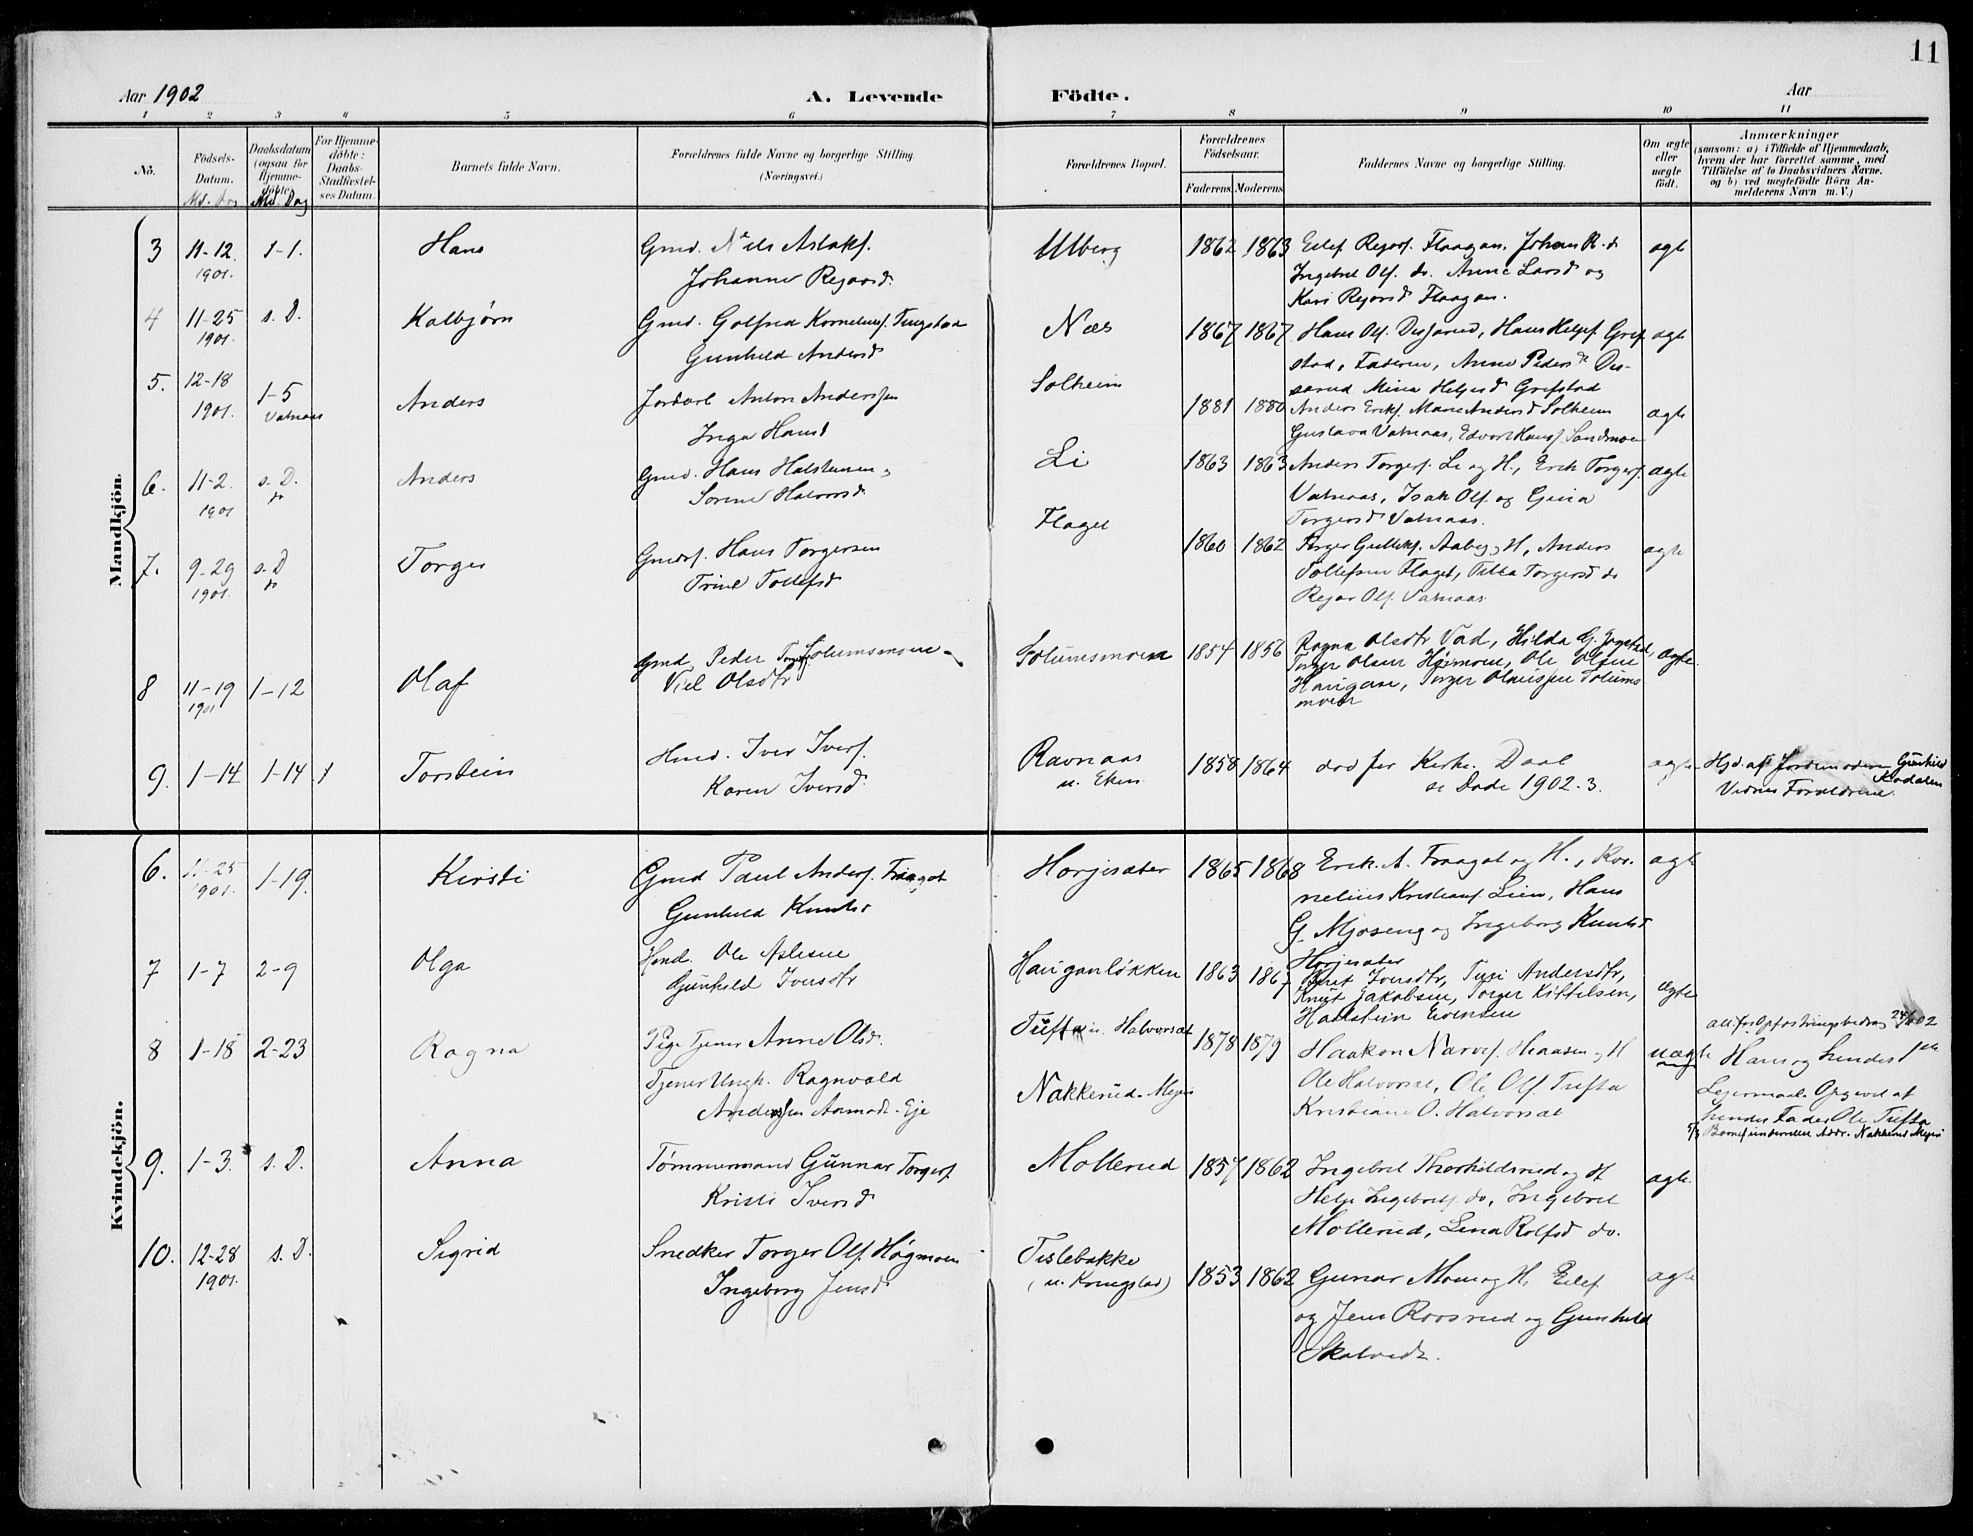 11
Aar 1902
A. Levende Födte.
Aar
1 2 3 4 5 6 7 8 9 10 11
No.
Födsels-Datum.
Md. Dag
Daabsdatum (ogsaa for Hjemme-døbte).
Md. Dag
For Hjemme-døbte: Daabs-Stadfæstel-ses Datum.
Barnets fulde Navn.
Forældrenes fulde Navne og borgerlige Stilling.
(Næringsvei.)
Forældrenes Bopæl.
Forældrenes Födselsaar.
Faderens Moderens
Faddernes Navne og borgerlige Stilling.
Om ægte eller uægte födt.
Anmærkninger
(saasom: a) i Tilfælde af Hjemmedaab, hvem der har forrettet samme, med Tilföielse af to Daabsvidners Navne. og b) ved uægtefödte Börn An-melderens Navn m. V.)
Mandkjön.
3 11-12 1901. 1-1. Hans
Gmd. Nils Aslaks.
Johanne Regarsd.
Ulberg 1862 1863
Eilef Regars. Flaagan. Johan R. do
Ingebret Ols. do. Anne Larsd og
Kari Regarsd Flaagan.
ægte
4 11-25 1901 s. D. Kolbjørn
Gmd. Golfred Kornelius. Tingstad
Gunhild Andersd
Næs 1867 1867
Hans Ols. Disserud, Hans Helges. Gref
stad, Faderen, Anne Pedersd Dis-
serud Mina Helgesd Grefstad
ægte
5. 12-18 1901. 1-5 Vatnaas Anders
Jordarb Anton Anderssen
Inga Hansd
Solheim 1881 1880
Anders Eriks. Marie Andersd Solheim
Gustava Vatnaas, Edvart Hans. Sandmoen
ægte
6. 11-2. 1901 s. D. do Anders
Gmd. Hans Halstensen
Sorine Halvorsd
Li 1863 1863
Anders Torgers. Li og H., Erik Torgers.
Vatnaas, Isak Ols. og Gina
Torgersd Vatnaas.
ægte
7. 9-29 1901. s. D do Torger
Gmdss. Hans Torgersen
Trine Tollefsd
Flaget 1860 1862
Torger Gulliks. Aaby og H, Anders
Tollefsen Flaget, Tilla Torgersd do
Regar Ols. Vatnaas
ægte
8 11-19 1901 1-12 Olaf
Gmd. Peder Torgers. Solumsmoen
Viel Olsdtr
Solumsmoen 1854 1856
Ragna Olsdtr Vad, Hilda G.
Torger Olsen Høimoen, Ole Olsen
Haugan, Torger Olausen Solums
moen
ægte.
9. 1-14 1-14 1 Torstein
Hmd. Iver Ivers.
Karen Iversd
Ravnaas
u. Eken 1858 1864
død før Kirke. Daab
se Døde 1902. 3.
ægte
Hjd. af Jordmoderen Gunhild
Kodalen
Vidner Forældrene.
Kvindekjön.
6. 11-25 1901. 1-19. Kirsti
Gmd Paul Anders. Fraagot
Gunhild Knutsd
Horjesæter 1865 1868
Erik. A. Fraagot og H., Kor-
nelius Kristians. Lien, Hans
G. Mjøseng og Ingeborg Knutsd
Horjesæter
ægte
7 1-7 2-9 Olga
Hmd. Ole Aslesen
Gunhild Iversdtr
Hauganløkken 1863 1867
Beret Iversdtr, Turi Andersdtr,
Knut Jakobsen, Torger Kittelsen,
Halstein Evensen
ægte
8 1-18 2-23 Ragna
Pige Tjener Anne Olsd.
Tjener Ungk. Ragnvald
Anderssen Aamodt-Eje
Tufta u. Halvorsat
Nakkerud. Mejeri 1878 1879
Haakon Narves. Haasen og H
Ole Halvorsat, Ole Ols. Tufta
Kristiane O. Halvorsat
uægte
anf. for Opfostringsbidrag 24/6 02
Hans og hendes 1ste
Leiermaal. Opgivet af
hendes Fader Ole Tufta
Barnef. underretter Addr. Nakkerud Mejeri
9. 1-3. s. D. Anna
Tømmermand Gunnar Torgers.
Kristi Iversd
Mollerud 1857 1862
Ingebret Thorhildsrud og H
Helge Ingebrets. do, Ingebret
Mollerud, Lina Rolfsd do.
ægte.
10. 12-28 1901. s. D. Sigrid
Snedker Torger Ols. Høgmoen
Ingeborg Jensd
Tislebakke
(u. Kongslad) 1853 1862
Gunar Moen og H. Eilef
og Jens Roosrud og Gunhild
Skalvedt.
ægte